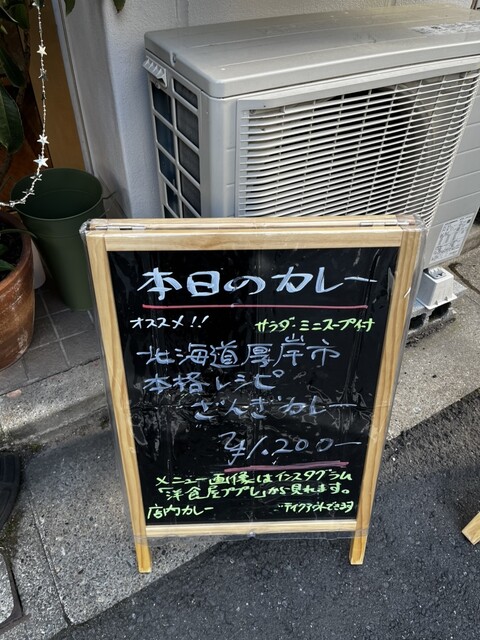 本日のカレー
オススメ!! サラダ・ミニスープ付
北海道厚岸市
本格レシピ
ざんぎカレー
¥1,200-
メニュー画像はインスタグラム
「洋食屋ププレ」から見れます。
店内カレー テイクアウトできます